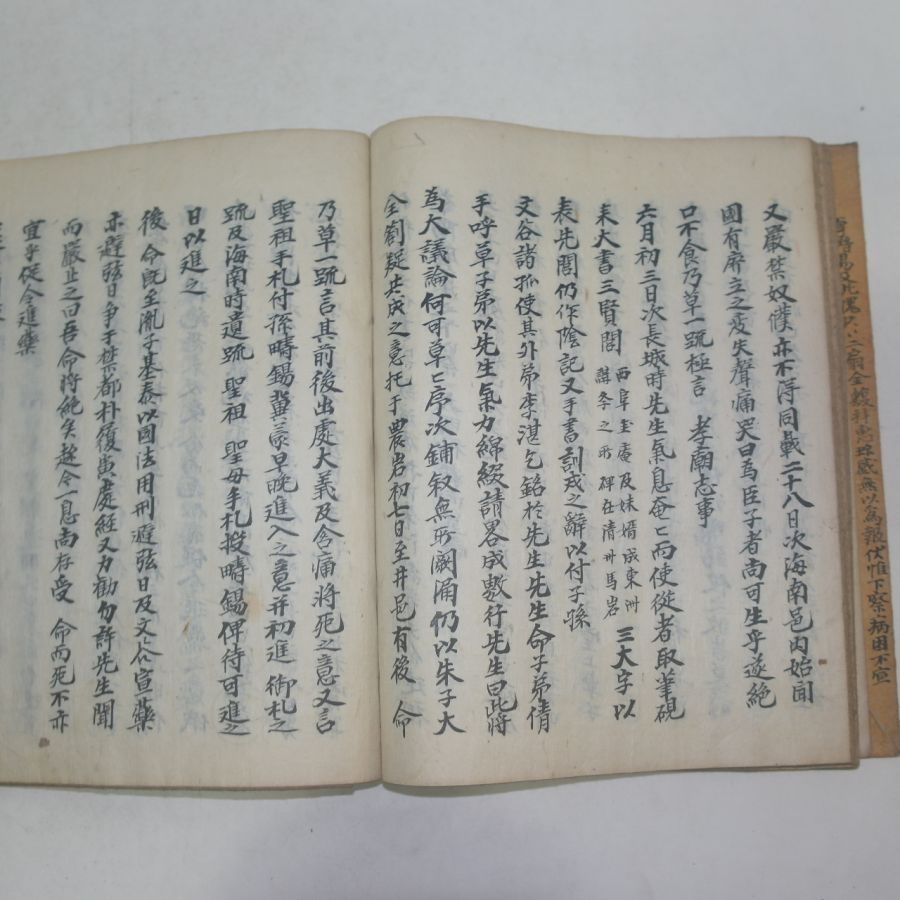 又嚴禁奴僕亦不得同載二十八日次海南邑內始聞
國有廢立之變失聲痛哭曰爲臣子者尚可生乎遂絶
口不食乃草一䟽極言 孝廟志事
六月初三日次長城時先生氣息奄亡而使從者取筆硯
來大書三賢閣 西阜 菴及妹婿成東洲 講 之所碑在淸州馬岩 三大字以
表先閣仍作陰記又手書訓戒之辭以付子孫
文谷諸孤使其外弟李湛乞銘於先生先生命子弟倩
手呼草子弟以先生氣力綿綴請畧成數行先生曰此將
爲大議論何可草亡序次鋪叙無所闕漏仍以朱子大
全劄疑共成之意托于農岩初七日至井邑有後 命
乃草一䟽言其前後出處大義及含痛將死之意又言
聖祖手札付孫疇錫冀蒙早晩進入之意并初進 御札之
䟽及海南時遺䟽 聖祖 聖母手札投疇錫俾待可進之
日以進之
後 命旣至胤子基泰以國法用刑避弦日及文谷宣藥
亦避弦日爭于禁都朴履寅處經又力勸勿許先生聞
而嚴止之曰吾命將絶矣趁今一息尚存受 命而死不亦
宜乎促令進藥
二 金 拜 感無以爲報伏惟下 病困不宣